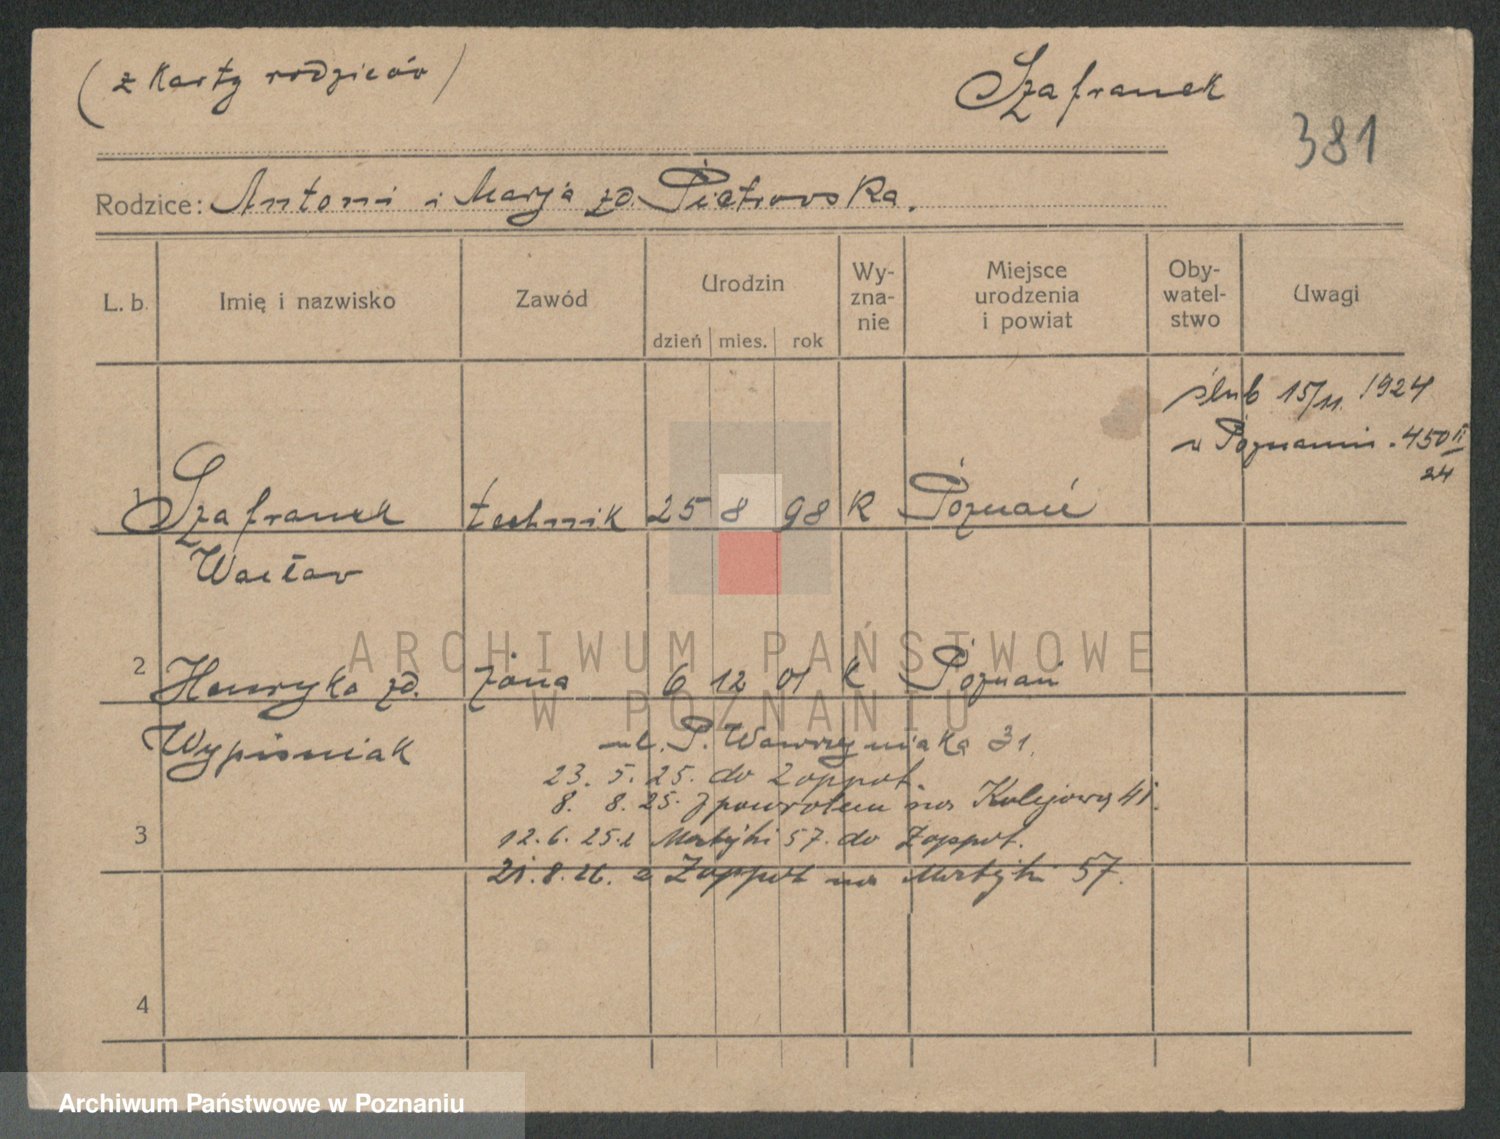 (z karty rodziców)
Szafranek
381
Rodzice: Antoni i Marja zd. Pietrowska.
L. b.
Imię i nazwisko
Zawód
Urodzin
dzień
mies.
rok
Wy-
zna-
nie
Miejsce
urodzenia
i powiat
Oby-
watel-
stwo
Uwagi
ślub 15/11. 1924
w Poznaniu . 450 II
24
1 Szafranek technik 25 8 98 K Poznań
Wacław
2 Henryka zd. żona 6 12 01 K Poznań
Wypiśniak
ul. P. Wawrzyniaka 31.
23. 5. 25. do Zoppot.
8. 8. 25. z powrotem na Kolejową 41.
3
12.6.25. z Matejki 57. do Zoppot.
21.8.26. z Zoppot na Matejki 57.
4
ARCHIWUM PAŃSTWOWE
W POZNANIU
Archiwum Państwowe w Poznaniu